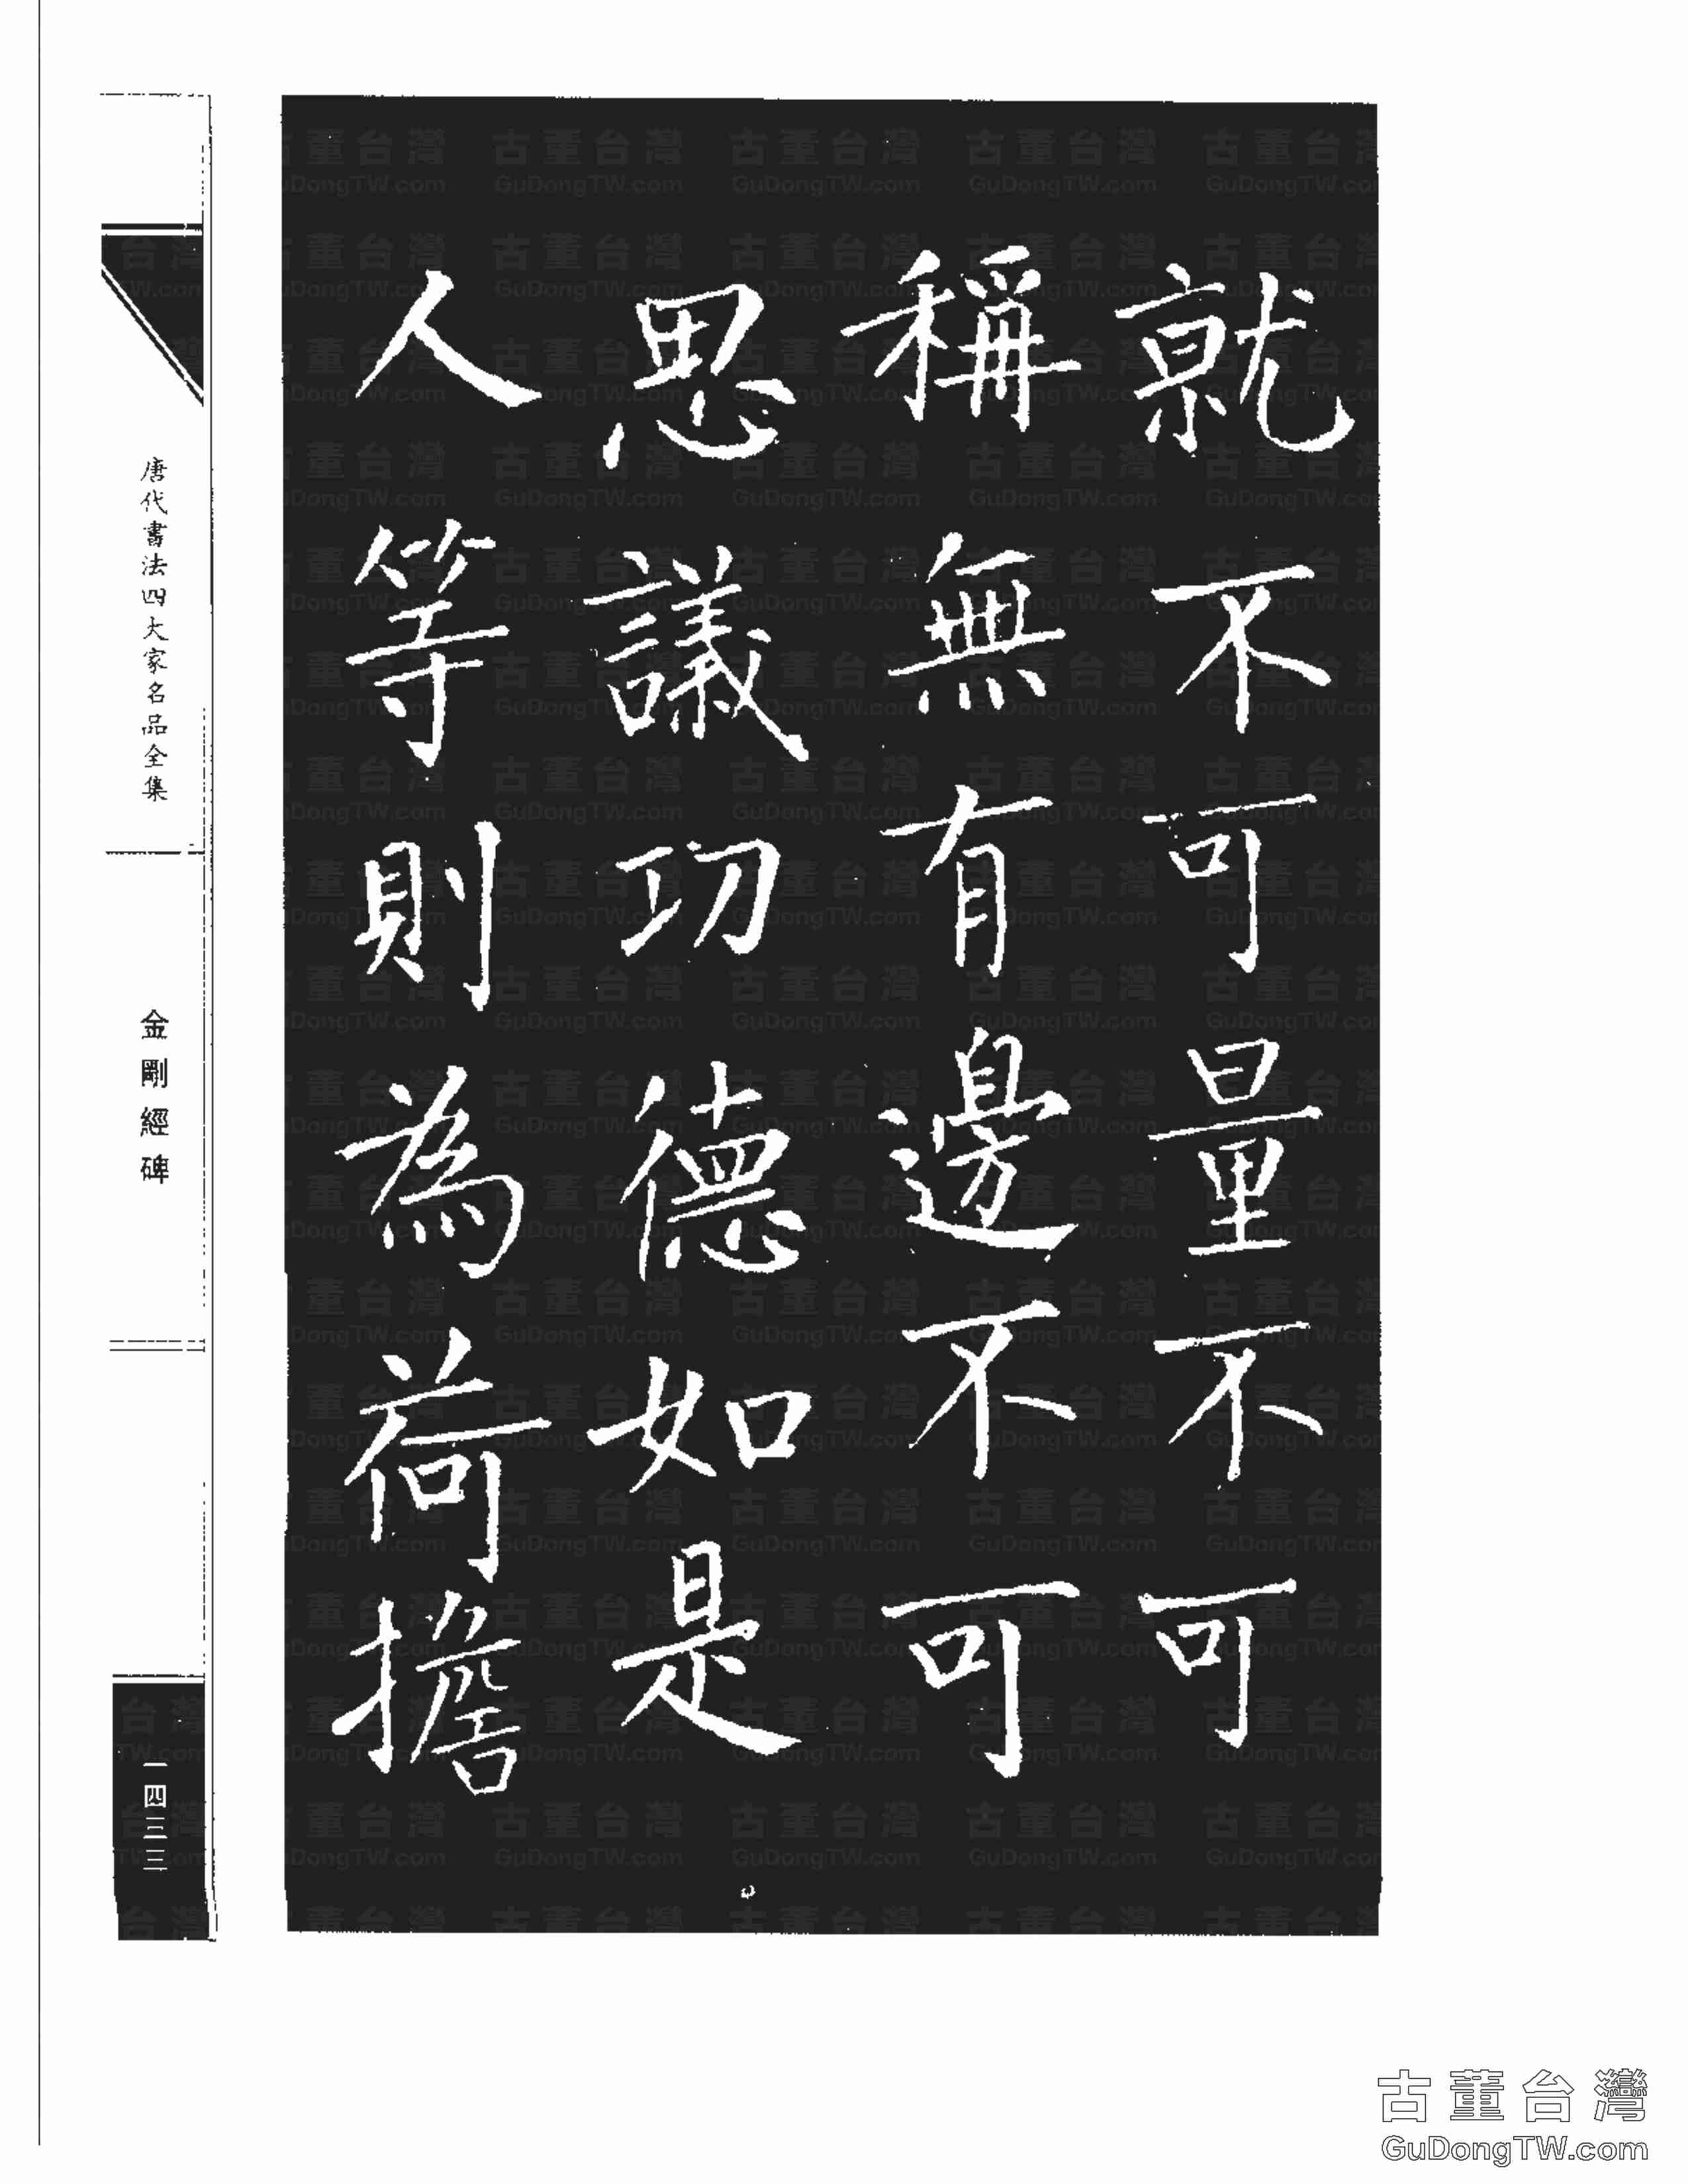 就不可量不可
稱無有邊不可
思議功德如是
人等則為荷擔
唐代書法四大家名品全集
金剛經碑
一四三三
古董台灣
GuDongTW.com